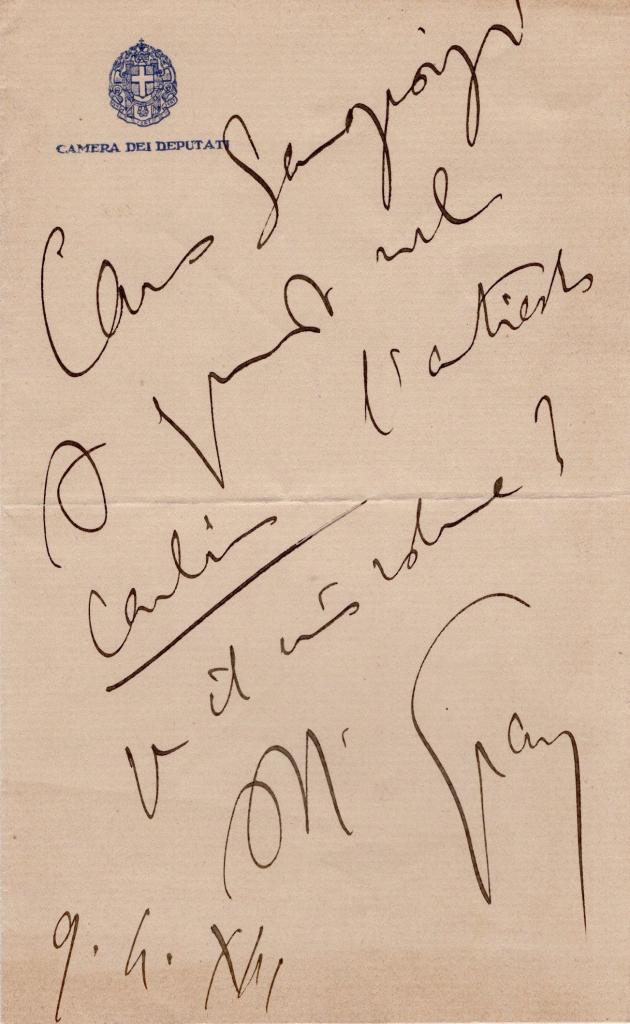 CAMERA DEI DEPUTATI
Caro Sangiorgi
A quando nel
Carlino l'articolo
e il mio volume?
Gray
9.4.XII